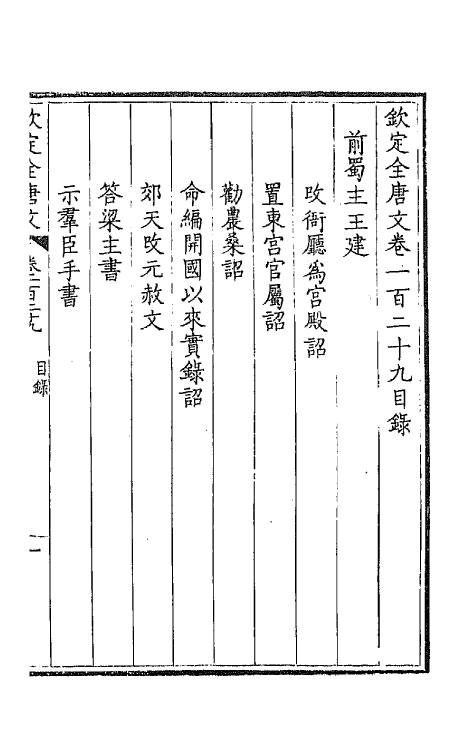 欽定全唐文卷一百二十九目錄
前蜀主王建
改衙廳為宮殿詔
置東宮官屬詔
勸農桑詔
命編開國以來實錄詔
郊天改元赦文
答梁主書
示羣臣手書
欽定全唐文 卷一百二十九 目錄 一